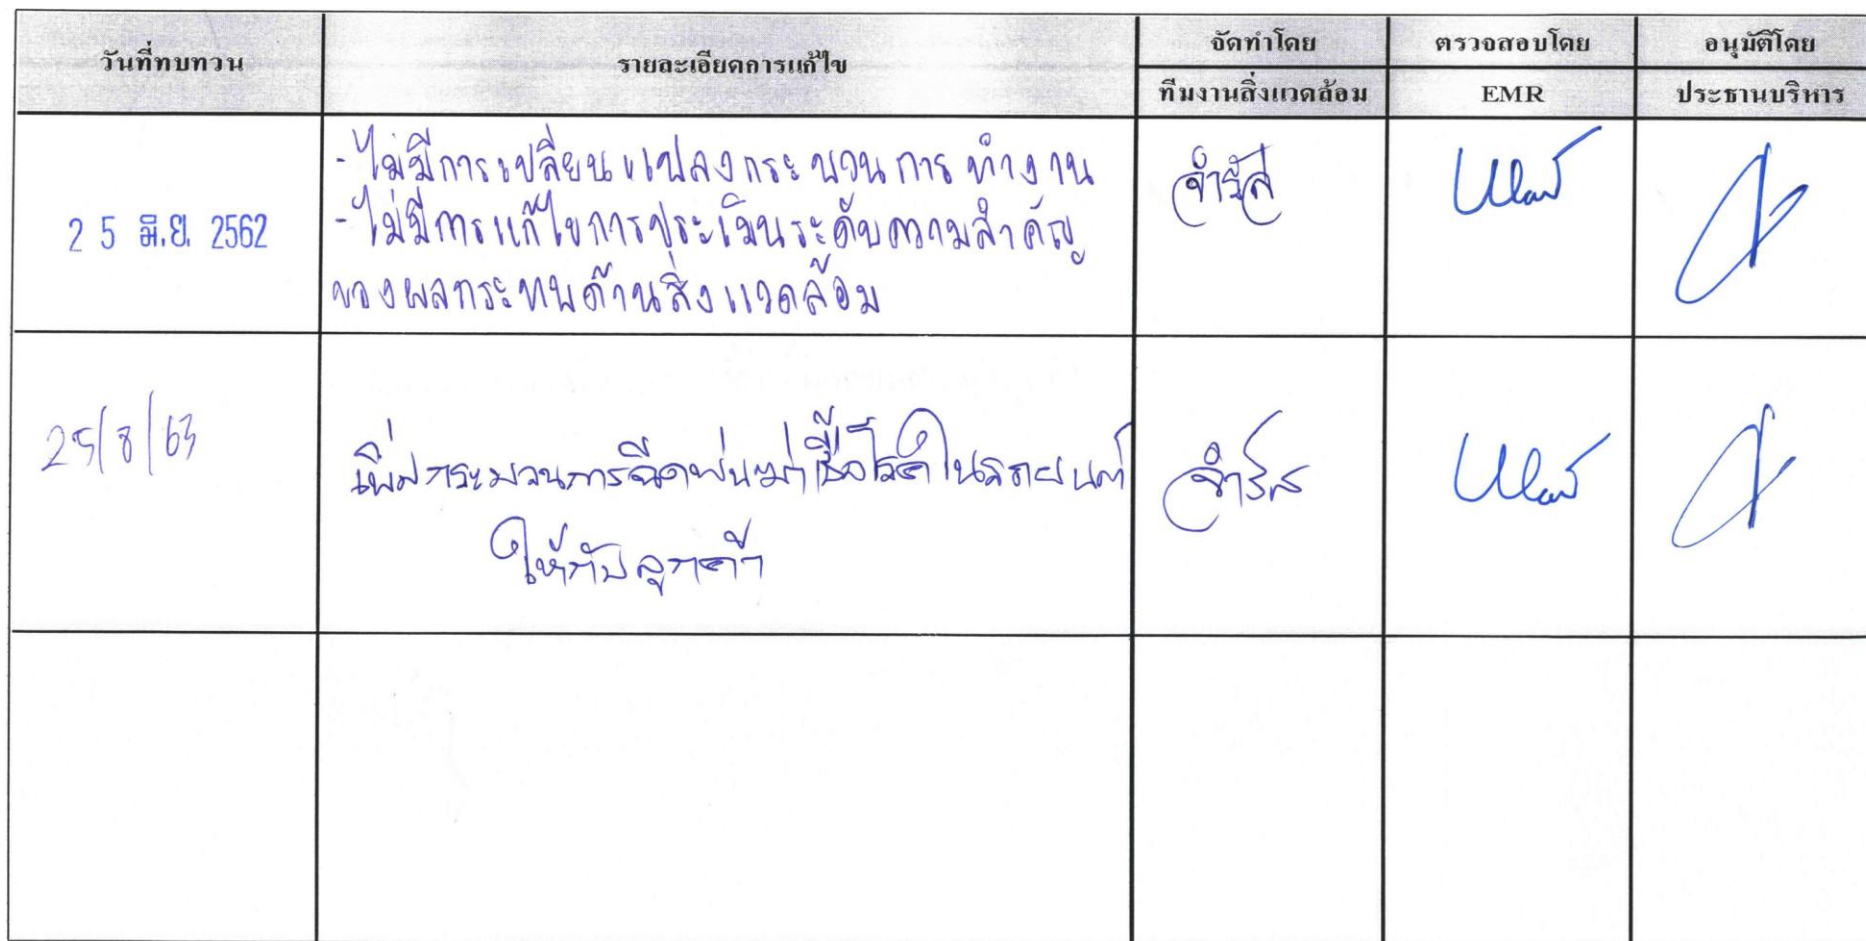 วันที่ทบทวน รายละเอียดการแก้ไข จัดทำโดย ตรวจสอบโดย อนุมัติโดย
ทีมงานสิ่งแวดล้อม EMR ประธานบริหาร
25 มิ.ย. 2562
-ไม่มีการเปลี่ยนแปลงกระบวนการทำงาน
-ไม่มีการแก้ไขการประเมินระดับความสำคัญ
ของผลกระทบด้านสิ่งแวดล้อม
จำรัส
25/8/63
เพิ่มกระบวนการฉีดพ่นฆ่าเชื้อโรคในรถยนต์
ให้กับลูกค้า
จำรัส